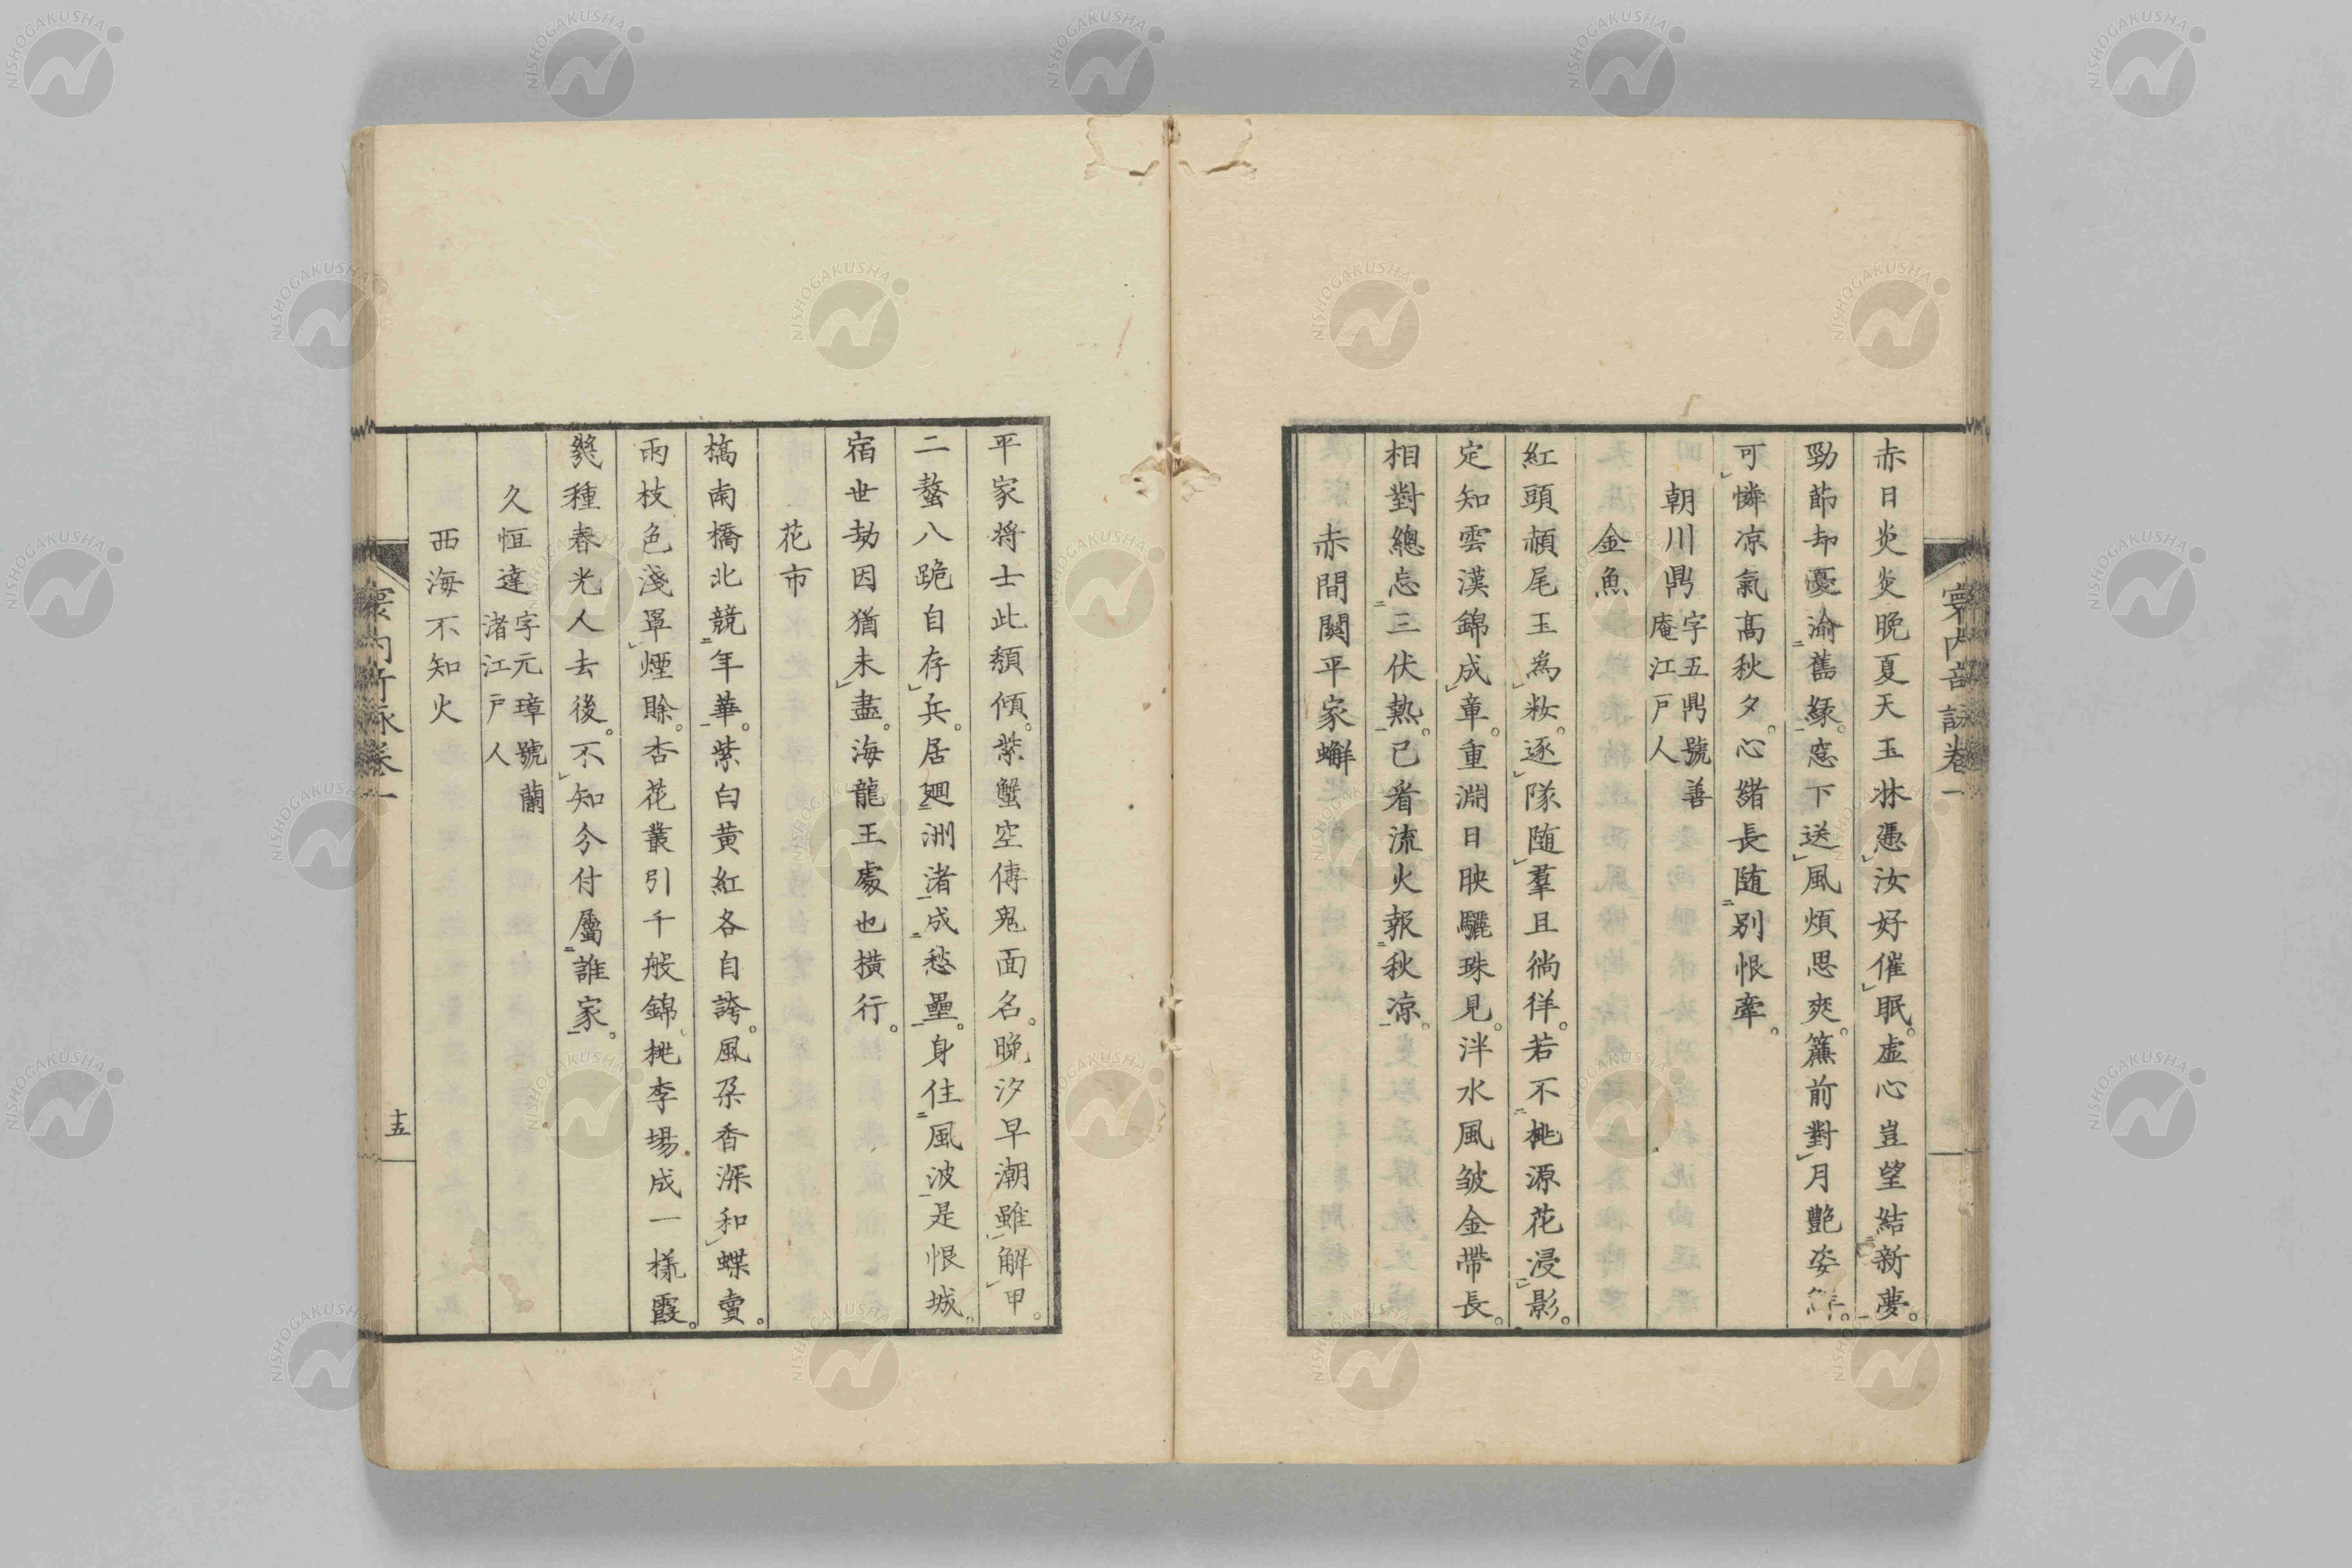 赤日炎炎晩夏天玉牀憑汝好催眠。虚心豈望結新夢。
勁節却憂渝舊綠。窓下送風煩思爽。簾前對月艶姿
可憐凉氣高秋夕。心緒長随別恨牽。
朝川鼎字五鼎號善庵江戸人
金魚
紅頭赬尾玉為粧。逐隊随羣且徜徉。若不桃源花浸影。
定知雲漢錦成章。重淵日映驪珠見。泮水風皺金帶長。
相對總忘三伏熱。已看流火報秋凉。
赤間關平家蠏
平家将士此頽傾。紫蟹空傳鬼面名。晩汐早潮雖解甲。
二螯八跪自存兵。居廻洲渚成愁壘。身住風波是恨城。
宿世劫因猶未盡。海龍王處也横行。
花市
橋南橋北競年華。紫白黄紅各自誇。風朶香深和蝶賣。
雨枝色淺罩煙賒。杏花叢引千般錦。桃李場成一様霞。
幾種春光人去後。不知今付屬誰家。
久恒達字元璋號蘭渚江戸人
西海不知火
寰内奇詠卷一
十五
NISHOGAKUSHA